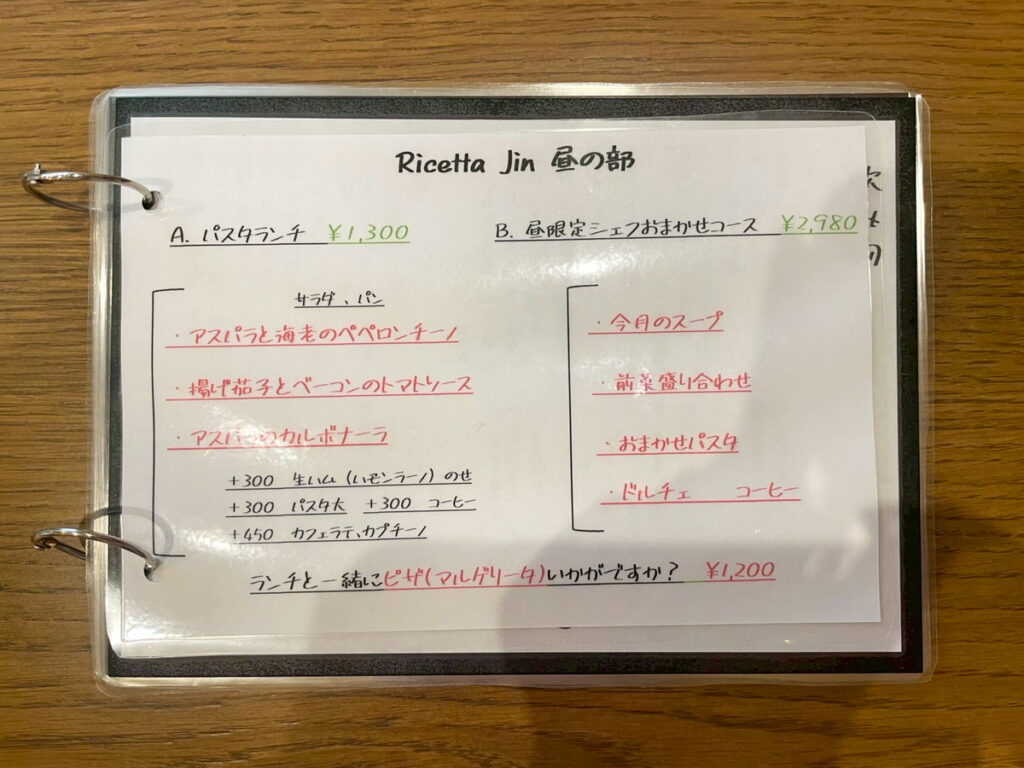 Ricetta Jin 昼の部
A. パスタランチ ¥1,300
サラダ、パン
・アスパラと海老のペペロンチーノ
・揚げ茄子とベーコンのトマトソース
・アスパラのカルボナーラ
+300 生ハム(ハモンセラーノ)のせ
+300 パスタ大 +300 コーヒー
+450 カフェラテ、カプチーノ
B. 昼限定シェフおまかせコース ¥2,980
・今月のスープ
・前菜盛り合わせ
・おまかせパスタ
・ドルチェ コーヒー
ランチと一緒にピザ(マルゲリータ)いかがですか? ¥1,200